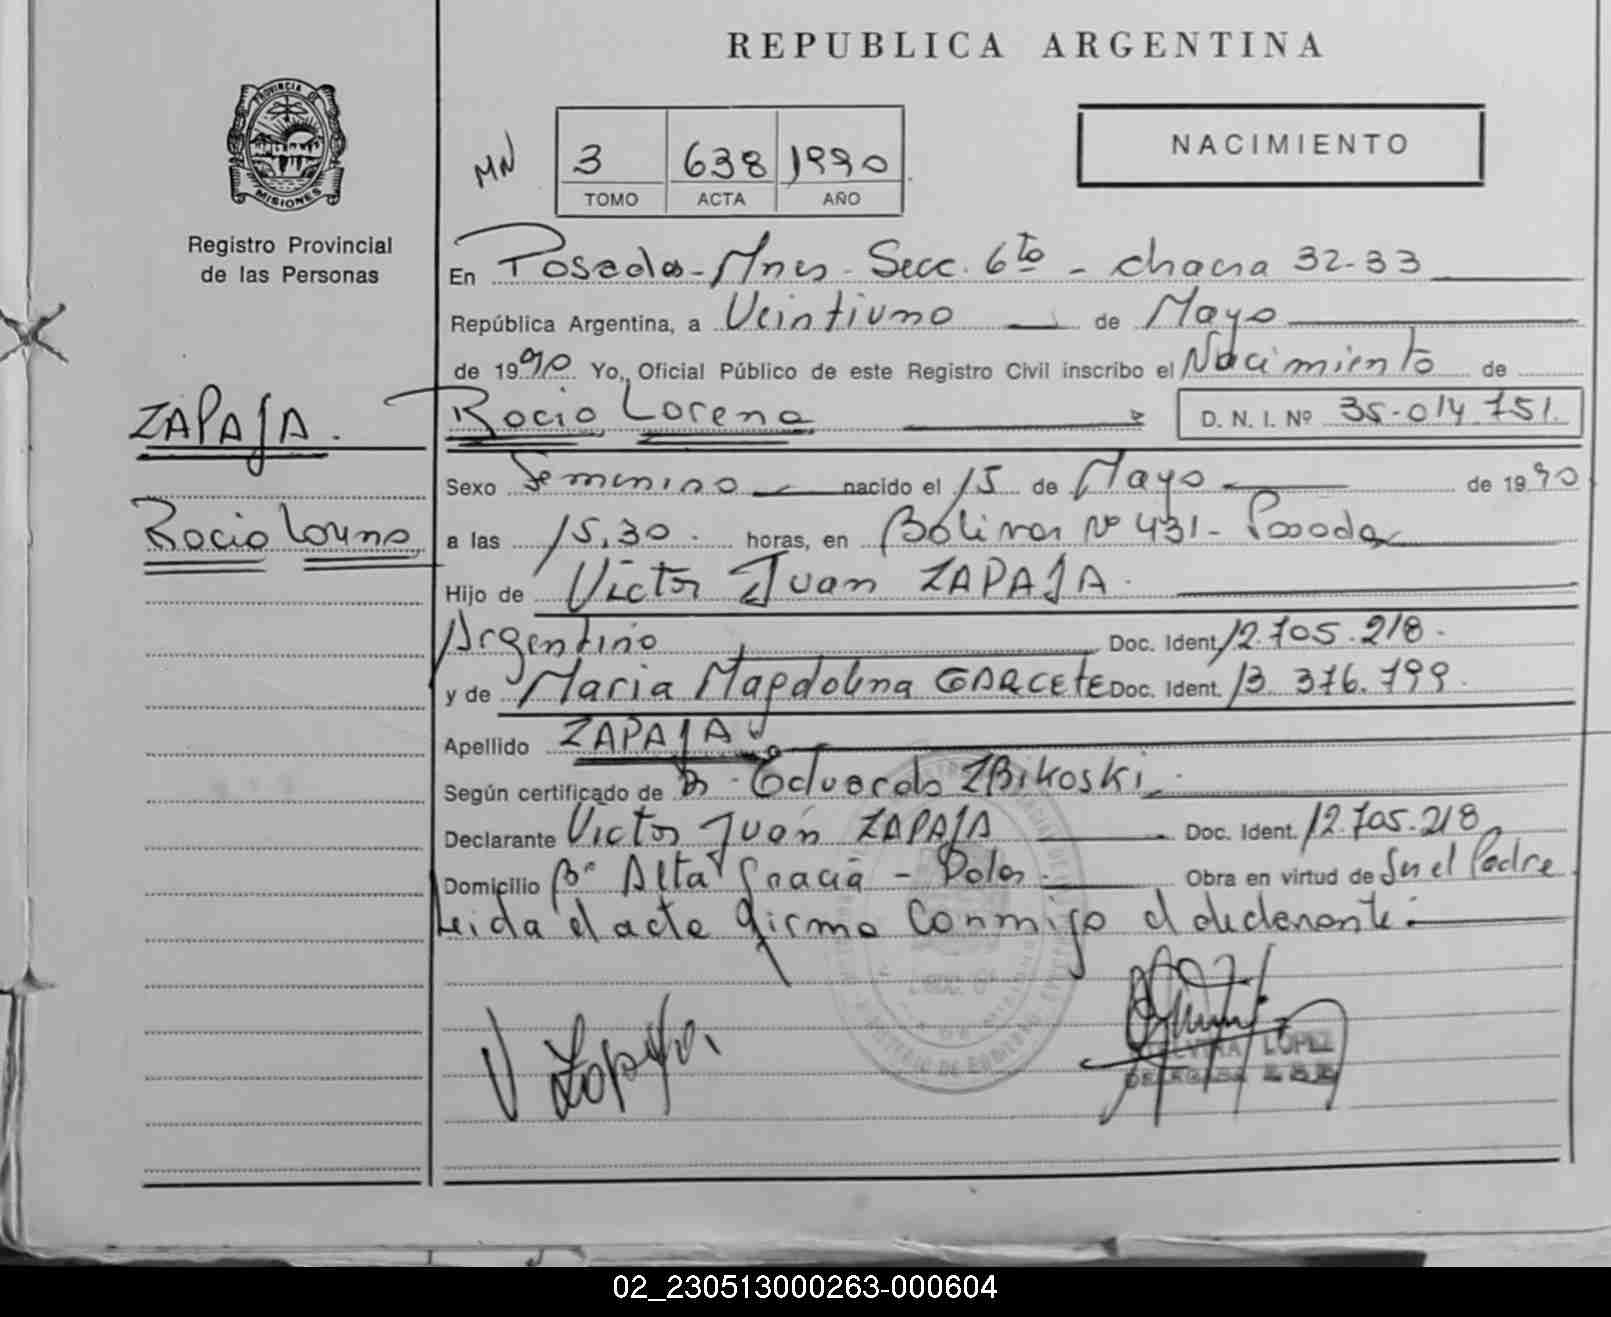 REPUBLICA ARGENTINA
PROVINCIA DE
MISIONES
Registro Provincial
de las Personas
MN
3 638 1990
TOMO ACTA AÑO
NACIMIENTO
En Posadas - Mnes - Secc. 6to - chacra 32-33
República Argentina, a Veintiuno de Mayo
de 1990 Yo, Oficial Público de este Registro Civil inscribo el Nacimiento de
ZAPAJA.
Rocio Lorena D. N. I. Nº 35.014.751.
Sexo Femenino nacido el 15 de Mayo de 1990
Rocio Lorena
a las 15,30. horas, en Bolivar Nº 431 - Posadas
Hijo de Victor Juan ZAPAJA.
Argentino Doc. Ident. 12.705.218.
y de Maria Magdalena GARCETE Doc. Ident. 13.376.799.
Apellido ZAPAJA
Según certificado de Dr. Eduardo ZBIKOSKI.
Declarante Victor Juan ZAPAJA Doc. Ident. 12.705.218
Domicilio Bº Alta Gracia - Pdas. Obra en virtud de Ser el Padre
Leida el acta firma conmigo el declarante.
V Zapaja.
LOPEZ
02_230513000263-000604